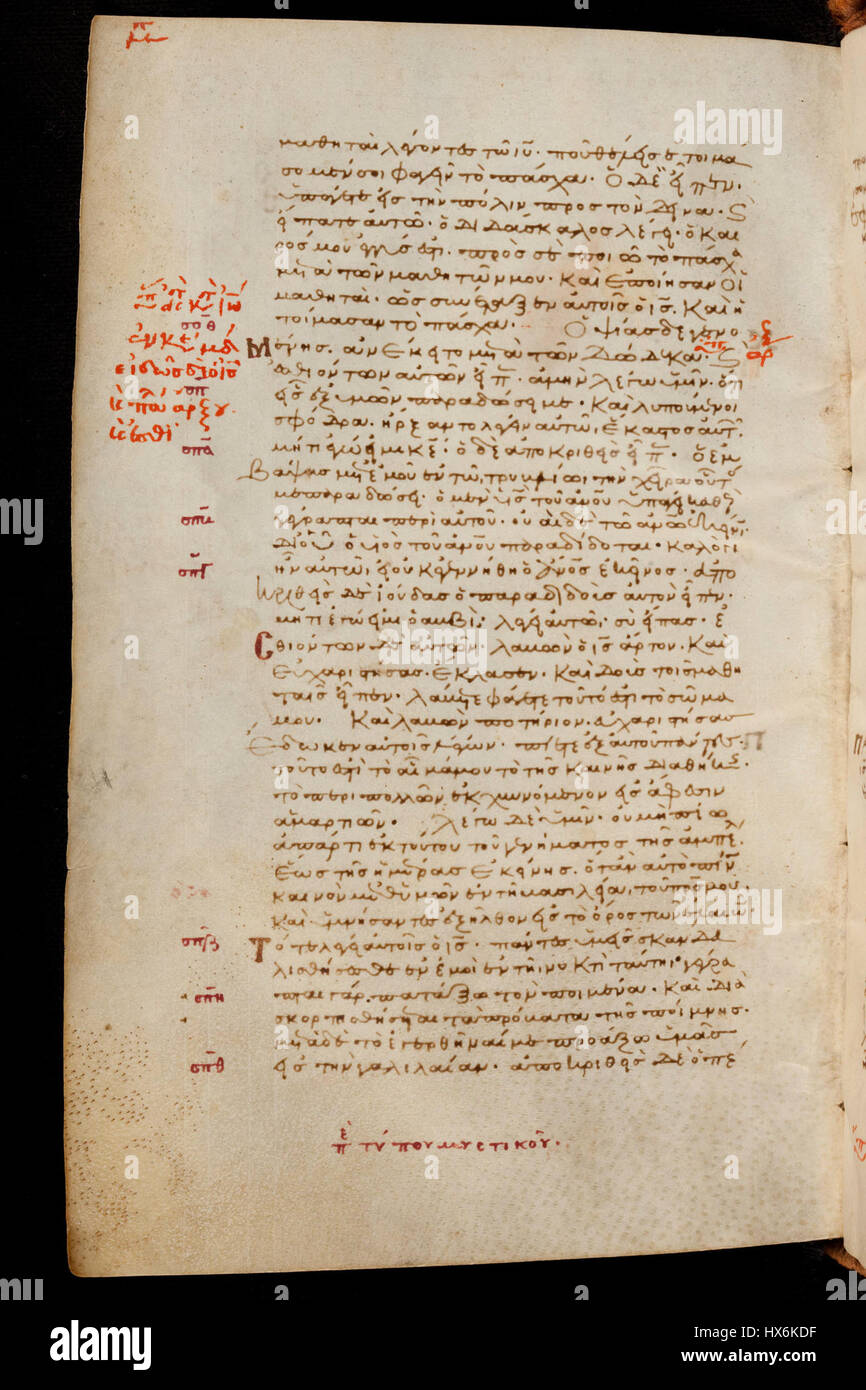 μαθηταὶ λέγοντες τῶ ιυ· ποῦ θέλεις ἑτοιμά
σομεν σοι φαγεῖν τὸ πάσχα· ὁ δὲ εἶπεν·
ὑπάγετε εἰς τὴν πόλιν πρὸς τὸν δεῖνα·
εἴπατε αὐτῶ· ὁ διδάσκαλος λέγει· ὁ και
ρός μου ἐγγύς ἐστι· πρὸς σὲ ποιῶ τὸ πάσχα
μετὰ τῶν μαθητῶν μου· καὶ ἐποίησαν οἱ
μαθηταὶ· ὡς συνέταξεν αὐτοῖς ὁ ις· καὶ ἡ
τοίμασαν τὸ πάσχα· Ὀψίας δὲ γενο
σοθ
μένης· ἀνέκειτο μετὰ τῶν δώδεκα·
θιόντων αὐτῶν εἶπ· ἀμὴν λέγω ὑμῖν· ὅτι
σπ
εἷς ἐξ ὑμῶν παραδώσει με· καὶ λυπούμενοι
σφόδρα· ἤρξαντο λέγειν αὐτῶ, ἕκαστος αὐτ
σπα
μήτι ἐγώ εἰμι κε· ὁ δὲ ἀποκριθεὶς εἶπ· ὁ ἐμ
βάψας μετ ἐμοῦ ἐν τῶ τρυβλίω τὴν χεῖρα οὗτο
με παραδώσει· ὁ μὲν υς τοῦ ανου ὑπάγει καθ
γέγραπται περὶ αὐτοῦ· οὐαὶ δὲ τῶ ανω ἐκείν
δι οὗ ὁ υἱὸς τοῦ ανου παραδίδοται· καλὸ
ἦν αὐτῶ, εἰ οὐκ ἐγεννήθη ὁ ανος ἐκεῖνος· ἀπο
κριθεὶς δὲ ἰούδας ὁ παραδιδοὺς αὐτὸν εἶπεν·
μήτι ἐγώ εἰμι ῥαββί· λέγει αὐτῶ· σὺ εἶπας· ἐ
σθιόντων δὲ αὐτῶν· λαβὼν ὁ ις ἄρτον· καὶ
εὐχαριστήσας· ἔκλασεν· καὶ δοὺς τοῖς μαθη
ταῖς εἶπεν· λάβετε φάγετε τοῦτό ἐστι τὸ σῶμα
μου· καὶ λαβὼν ποτήριον· εὐχαριστήσας
ἔδωκεν αὐτοῖς λέγων· πίετε ἐξ αὐτοῦ πάντες·
τοῦτο ἐστὶ τὸ αἷμά μου τὸ τῆς καινῆς διαθήκης·
τὸ περὶ πολλῶν ἐκχυνόμενον εἰς ἄφεσιν
ἁμαρτιῶν· λέγω δὲ ὑμῖν· οὐ μὴ πίω
ἀπάρτι ἐκ τούτου τοῦ γενήματος τῆς ἀμπέλ
ἕως τῆς ἡμέρας ἐκείνης· ὅταν αὐτὸ πίν
καινὸν μεθ ὑμῶν ἐν τῆ βασιλεία, τοῦ πρς μου·
καὶ ὑμνήσαντες ἐξῆλθον εἰς τὸ ὄρος τῶν ἐλαιῶν·
τότε λέγει αὐτοῖς ὁ ις· πάντες ὑμεῖς σκανδα
λισθήσεσθε ἐν ἐμοὶ ἐν τῆ νυκτὶ ταύτη· γέγρα
σπη
πται γάρ· πατάξω τὸν ποιμένα· καὶ δια
σκορπισθήσεται τὰ πρόβατα τῆς ποίμνης·
μετὰ δὲ τὸ ἐγερθῆναί με προάξω ὑμᾶς
σπθ
εἰς τὴν γαλιλαίαν· ἀποκριθεὶς δὲ ὁ πέ
τύπου μυστικοῦ·
a
HX6KDF
alamy stock photo
alamy
Image ID: HX6KDF
www.alamy.com